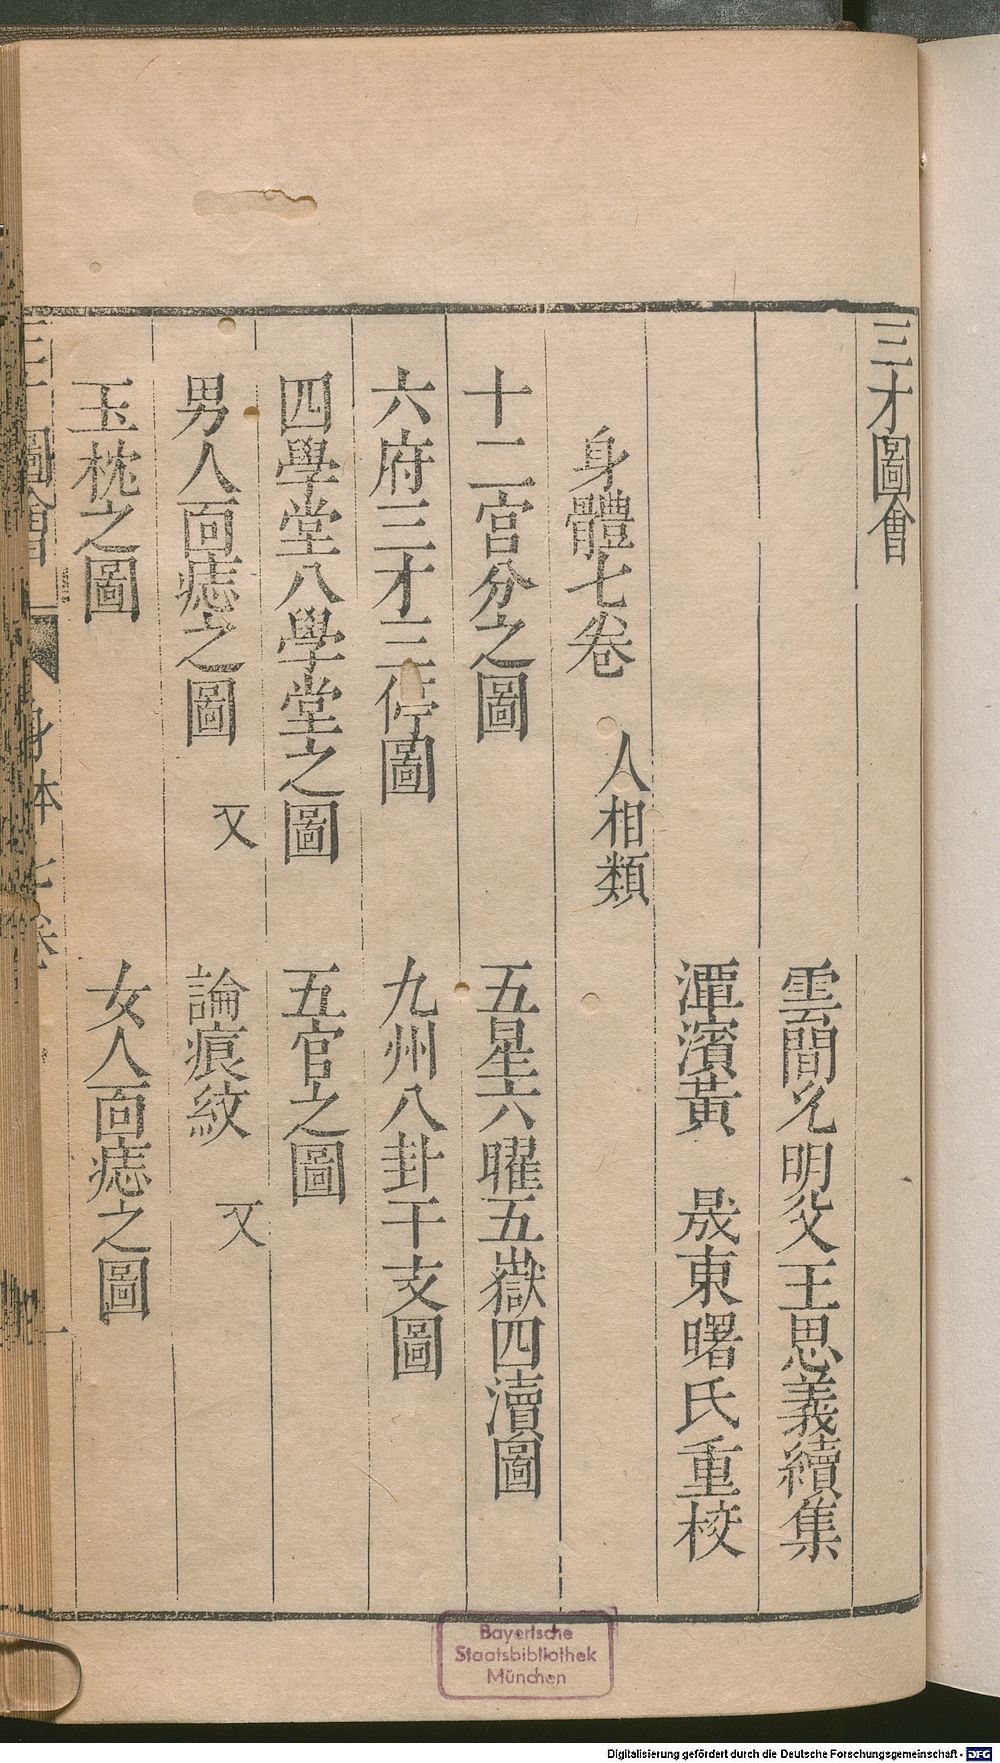 三才圖會
雲間允明父王思義續集
潭濱黃　晟東曙氏重校
身體七卷　人相類
十二宮分之圖　五星六曜五嶽四瀆圖
六府三才三停圖　九州八卦干支圖
四學堂八學堂之圖　五官之圖
男人面痣之圖　又　論痕紋　又
玉枕之圖　女人面痣之圖
三才圖會　身体七卷　一
Bayerische
Staatsbibliothek
München
Digitalisierung gefördert durch die Deutsche Forschungsgemeinschaft - DFG